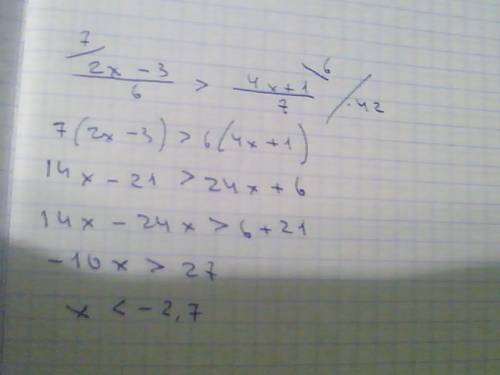 7 6
(2x - 3)/6 > (4x + 1)/7 / · 42
7(2x - 3) > 6(4x + 1)
14x - 21 > 24x + 6
14x - 24x > 6 + 21
-10x > 27
x < -2,7